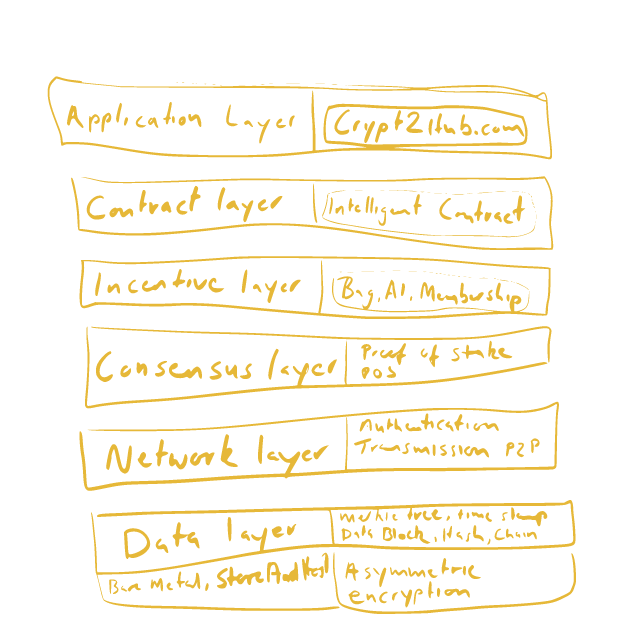 Application Layer
Crypt2Hub.com
Contract layer
Intelligent Contract
Incentive layer
Bag, AI, Membership
Consensus layer
Proof of stake
POS
Network layer
Authentication
Transmission P2P
Data layer
merkle tree, time stamp
Data Block, Hash, Chain
Bare Metal,
Asymmetric
encryption